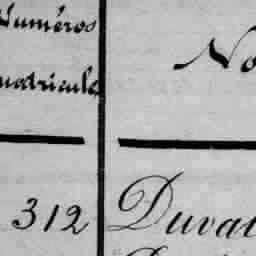 Numéros No
matricule
312 Duval